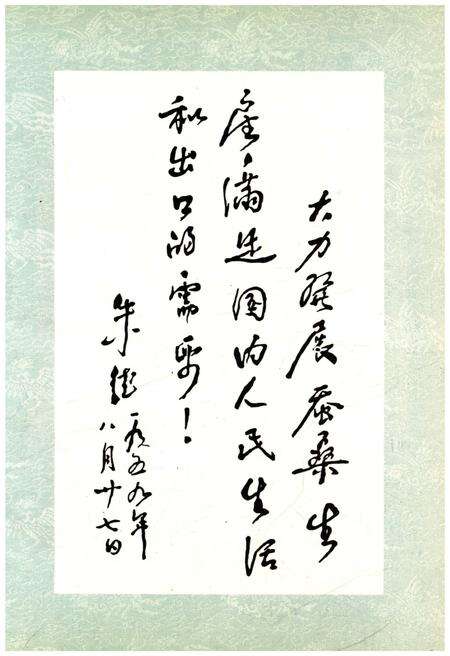 大力发展蚕桑生
产，满足国内人民生活
和出口的需要！
朱德 一九五九年
八月廿七日